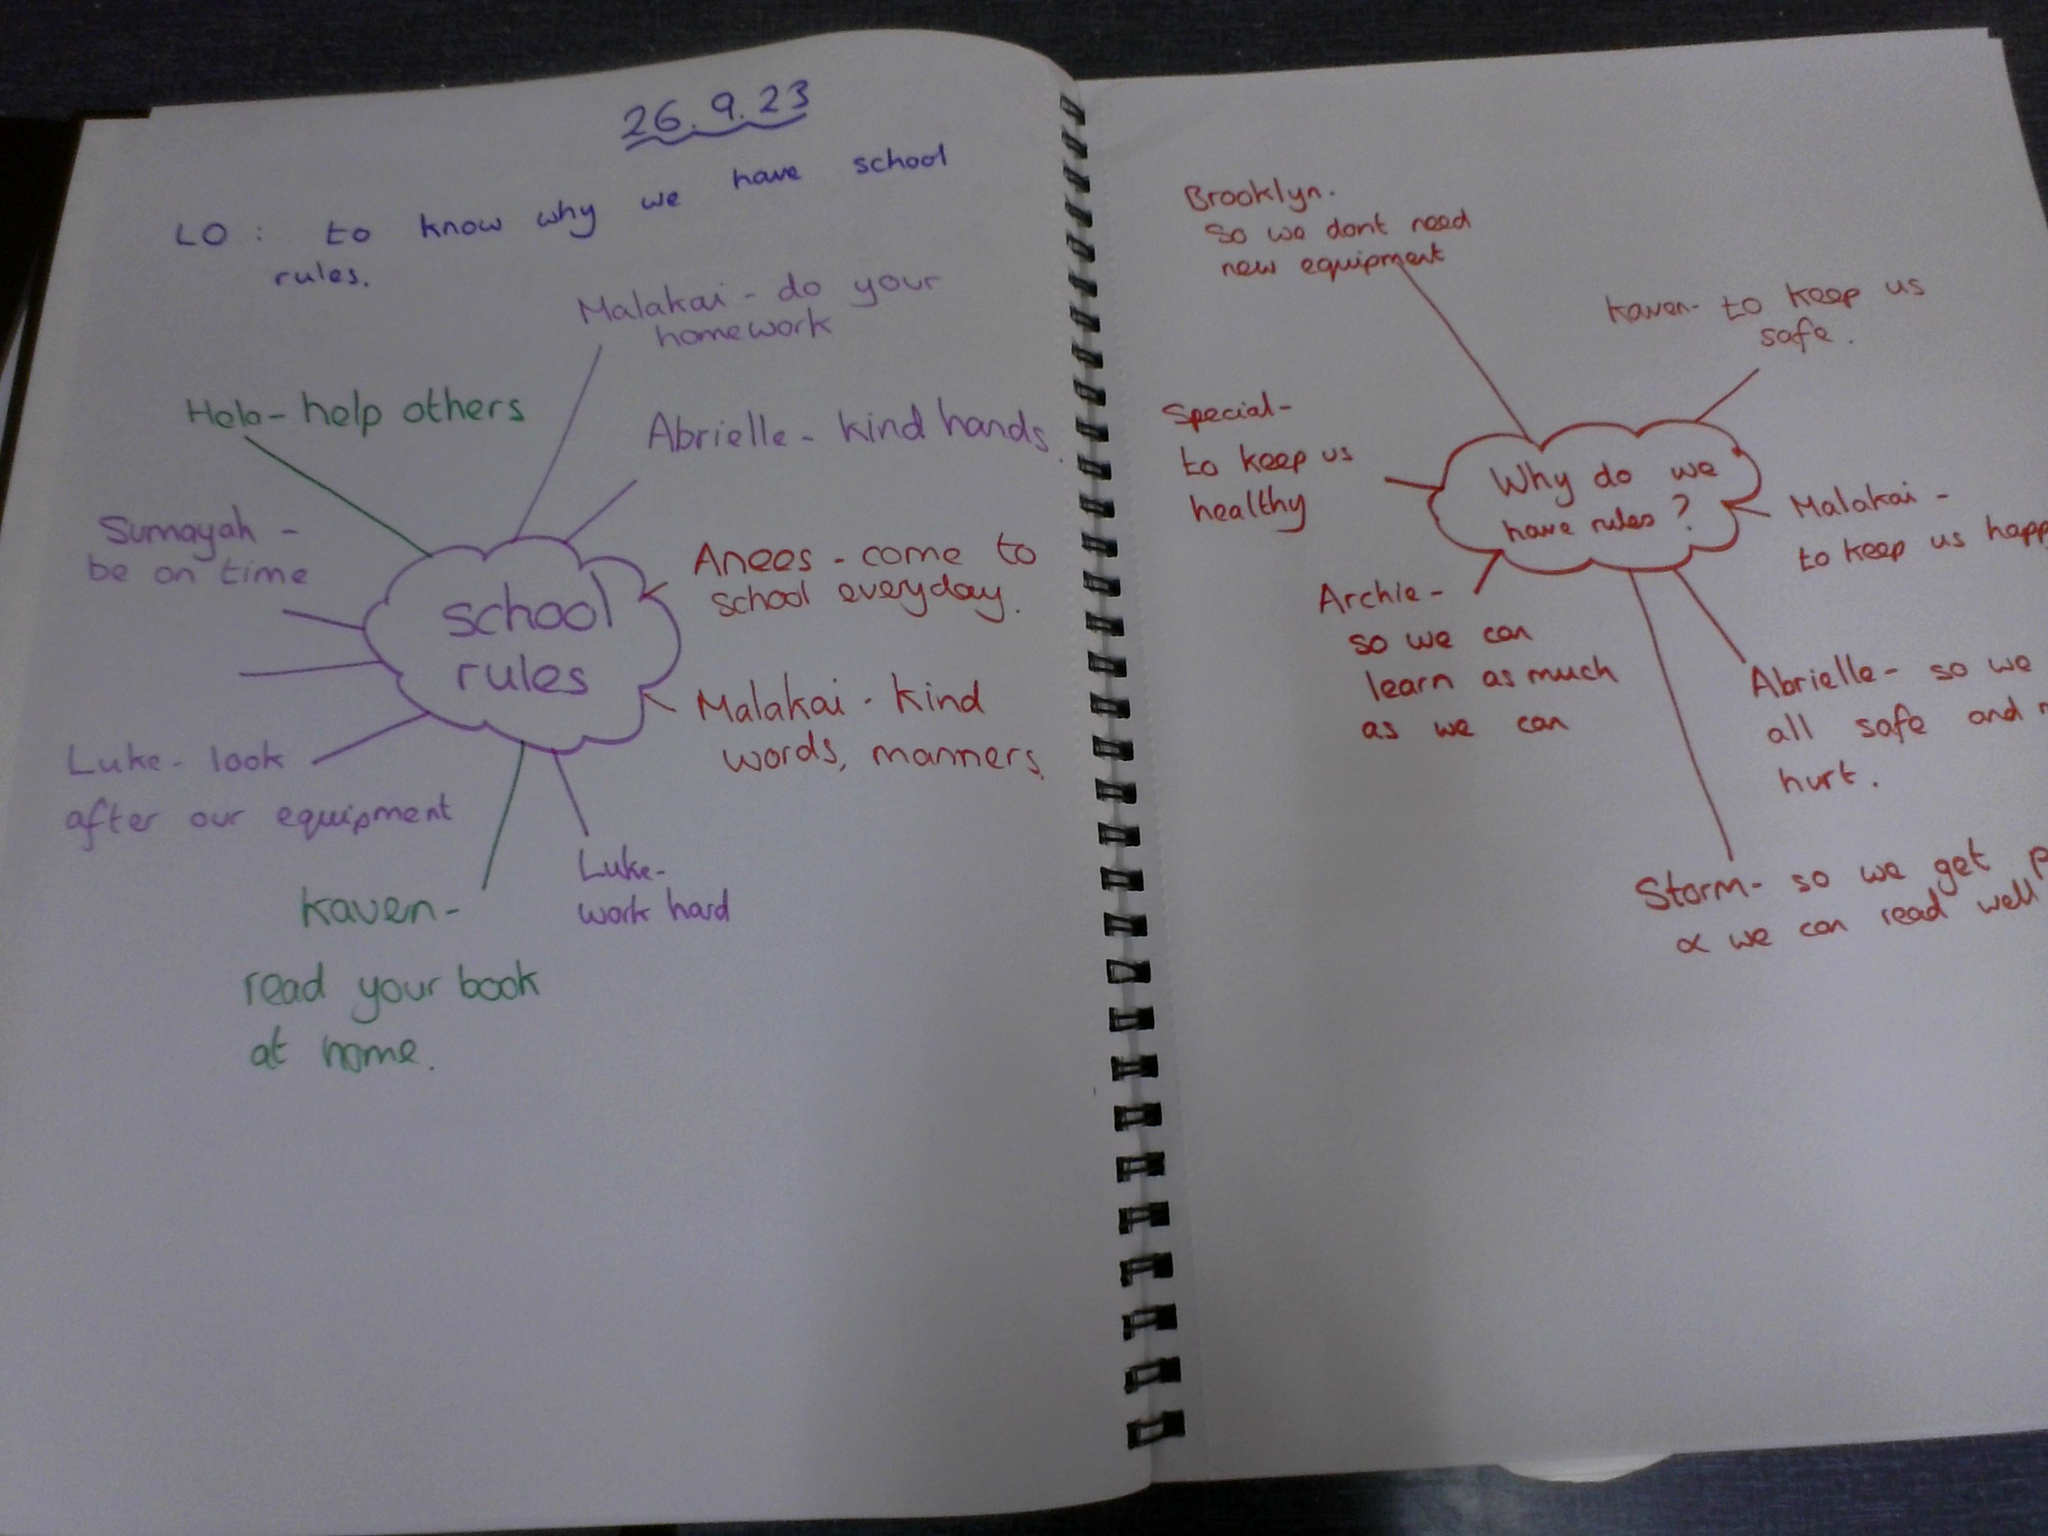 26.9.23
LO: to know why we have school
rules.
Malakai - do your
homework
Hela - help others
Abrielle - kind hands.
Sumayah -
be on time
Anees - come to
school everyday.
school
rules
Malakai - kind
words, manners.
Luke - look
after our equipment
Luke-
work hard
Kaven-
read your book
at home.
Brooklyn.
So we dont need
new equipment
Kaven- to keep us
safe.
Special-
to keep us
healthy
Why do we
have rules?
Malakai -
to keep us
Archie-
so we can
learn as much
as we can
Abrielle- so we
all safe and
hurt.
Storm- so we get
& we can read well